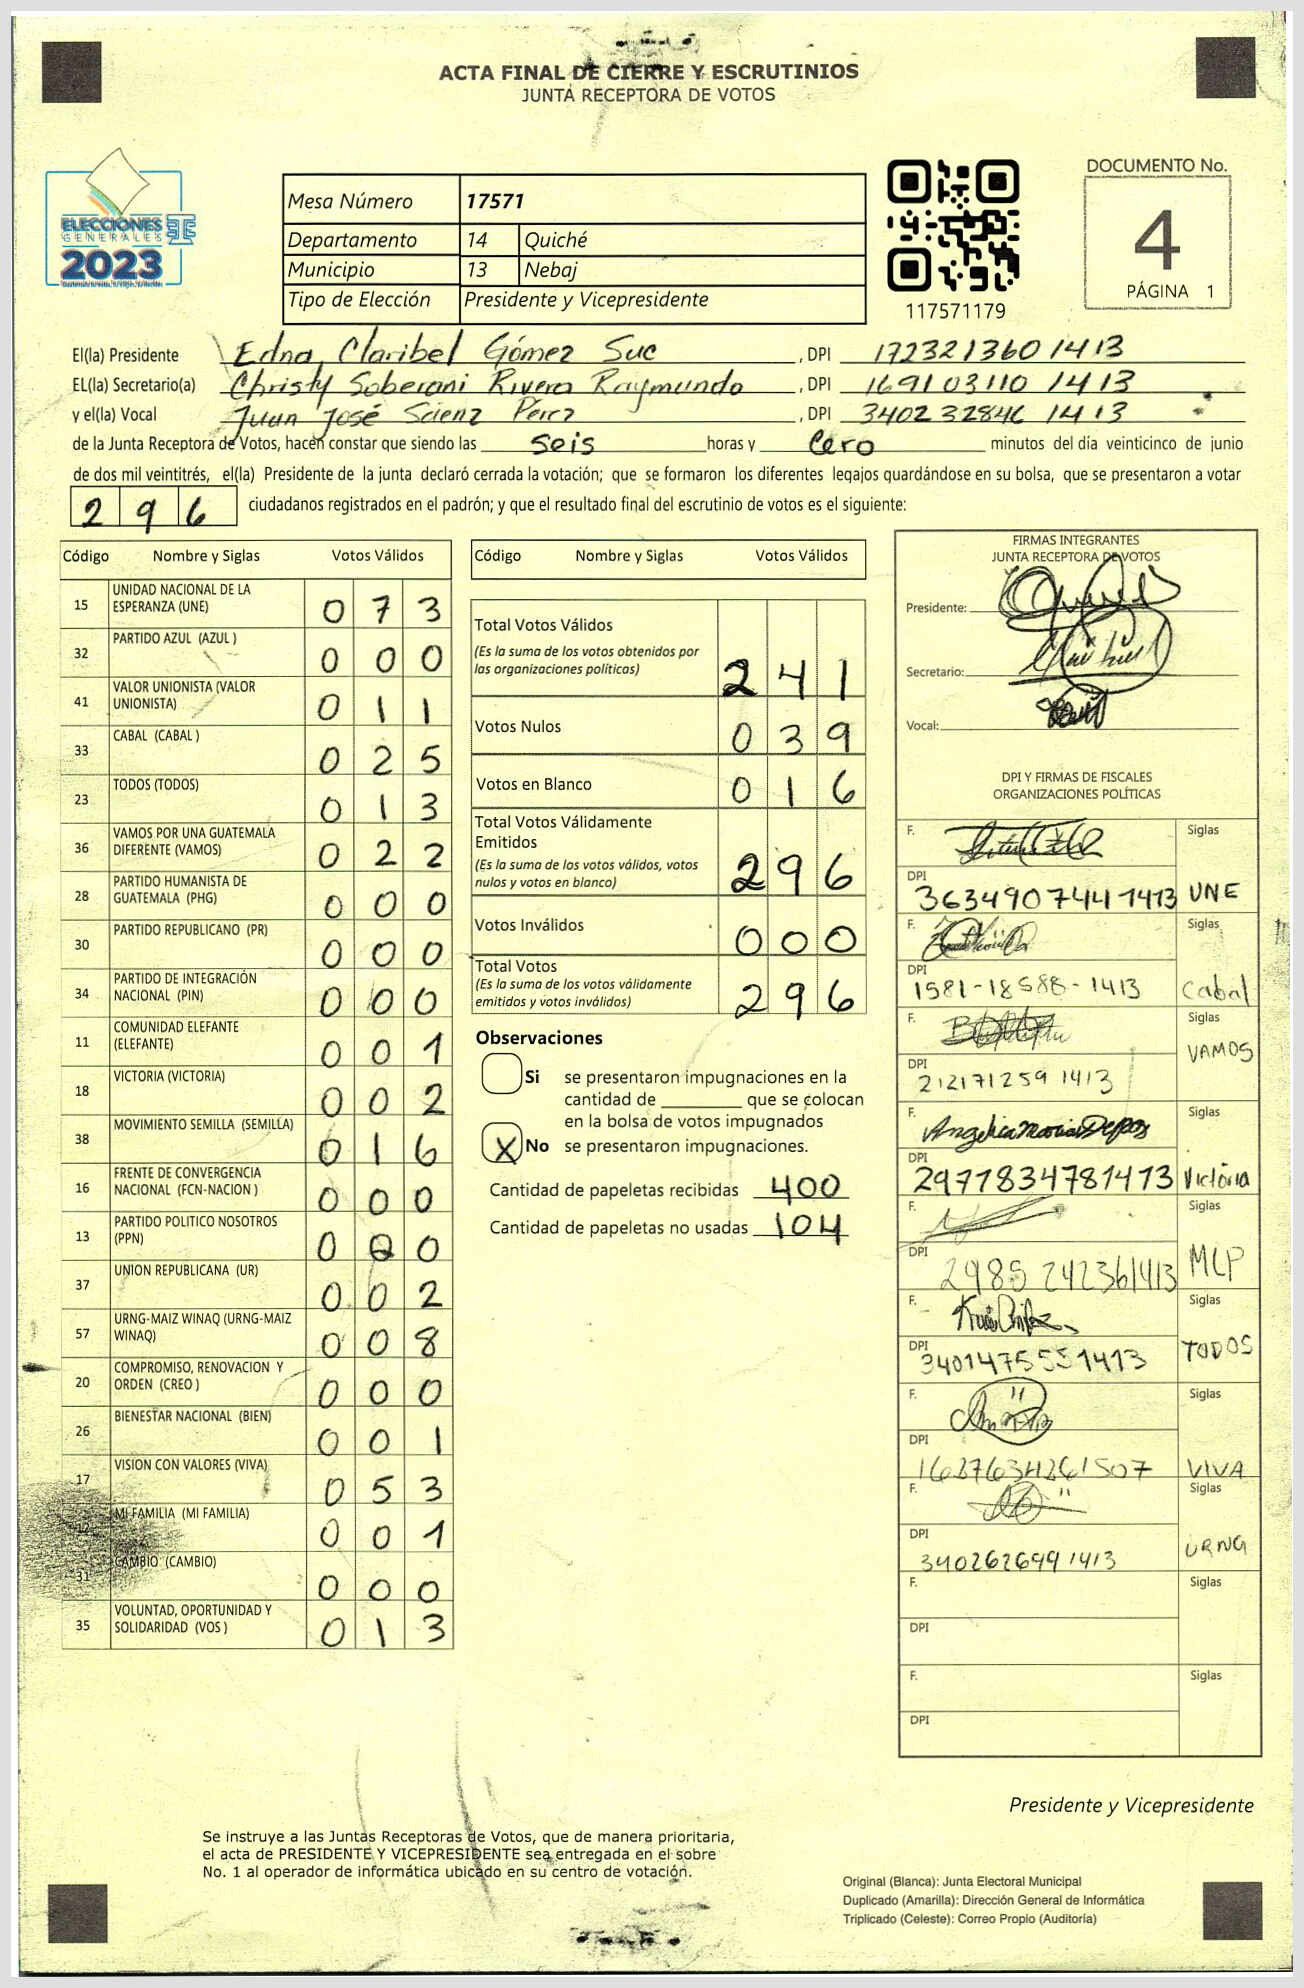 ACTA FINAL DE CIERRE Y ESCRUTINIOS
JUNTA RECEPTORA DE VOTOS
ELECCIONES
GENERALES
2023
Mesa Número 17571
Departamento 14 Quiché
Municipio 13 Nebaj
Tipo de Elección Presidente y Vicepresidente
117571179
DOCUMENTO No.
4
PÁGINA 1
El(la) Presidente Edna Claribel Gómez Suc , DPI 172321360 1413
EL(la) Secretario(a) Christy Soberani Rivera Raymundo , DPI 169103110 1413
y el(la) Vocal Juan José Sáenz Pérez , DPI 340232846 1413
de la Junta Receptora de Votos, hacen constar que siendo las seis horas y cero minutos del día veinticinco de junio
de dos mil veintitrés, el(la) Presidente de la junta declaró cerrada la votación; que se formaron los diferentes legajos guardándose en su bolsa, que se presentaron a votar
296 ciudadanos registrados en el padrón; y que el resultado final del escrutinio de votos es el siguiente:
Código Nombre y Siglas Votos Válidos
15 UNIDAD NACIONAL DE LA ESPERANZA (UNE) 073
32 PARTIDO AZUL (AZUL ) 000
41 VALOR UNIONISTA (VALOR UNIONISTA) 011
33 CABAL (CABAL ) 025
23 TODOS (TODOS) 013
36 VAMOS POR UNA GUATEMALA DIFERENTE (VAMOS) 022
28 PARTIDO HUMANISTA DE GUATEMALA (PHG) 000
30 PARTIDO REPUBLICANO (PR) 000
34 PARTIDO DE INTEGRACIÓN NACIONAL (PIN) 000
11 COMUNIDAD ELEFANTE (ELEFANTE) 001
18 VICTORIA (VICTORIA) 002
38 MOVIMIENTO SEMILLA (SEMILLA) 016
16 FRENTE DE CONVERGENCIA NACIONAL (FCN-NACION ) 000
13 PARTIDO POLITICO NOSOTROS (PPN) 000
37 UNION REPUBLICANA (UR) 002
57 URNG-MAIZ WINAQ (URNG-MAIZ WINAQ) 008
20 COMPROMISO, RENOVACION Y ORDEN (CREO ) 000
26 BIENESTAR NACIONAL (BIEN) 001
17 VISION CON VALORES (VIVA) 053
12 MI FAMILIA (MI FAMILIA) 001
31 CAMBIO (CAMBIO) 000
35 VOLUNTAD, OPORTUNIDAD Y SOLIDARIDAD (VOS ) 013
Código Nombre y Siglas Votos Válidos
Total Votos Válidos
(Es la suma de los votos obtenidos por
las organizaciones políticas) 241
Votos Nulos 039
Votos en Blanco 016
Total Votos Válidamente
Emitidos
(Es la suma de los votos válidos, votos
nulos y votos en blanco) 296
Votos Inválidos 000
Total Votos
(Es la suma de los votos válidamente
emitidos y votos inválidos) 296
Observaciones
Si se presentaron impugnaciones en la
cantidad de ________ que se colocan
en la bolsa de votos impugnados
X No se presentaron impugnaciones.
Cantidad de papeletas recibidas 400
Cantidad de papeletas no usadas 104
FIRMAS INTEGRANTES
JUNTA RECEPTORA DE VOTOS
Presidente:
Secretario:
Vocal:
DPI Y FIRMAS DE FISCALES
ORGANIZACIONES POLÍTICAS
F. Siglas
DPI 3634907441413 UNE
F. Siglas
DPI 1581-18588-1413 Cabal
F. Siglas
DPI 212171259 1413 VAMOS
F. Siglas
DPI 2977834781413 Victoria
F. Siglas
DPI 2985 242361413 MLP
F. Siglas
DPI 3401475551413 TODOS
F. Siglas
DPI 1627634261507 VIVA
F. Siglas
DPI 340262699 1413 URNG
F. Siglas
DPI
F. Siglas
DPI
Presidente y Vicepresidente
Se instruye a las Juntas Receptoras de Votos, que de manera prioritaria,
el acta de PRESIDENTE Y VICEPRESIDENTE sea entregada en el sobre
No. 1 al operador de informática ubicado en su centro de votación.
Original (Blanca): Junta Electoral Municipal
Duplicado (Amarilla): Dirección General de Informática
Triplicado (Celeste): Correo Propio (Auditoría)